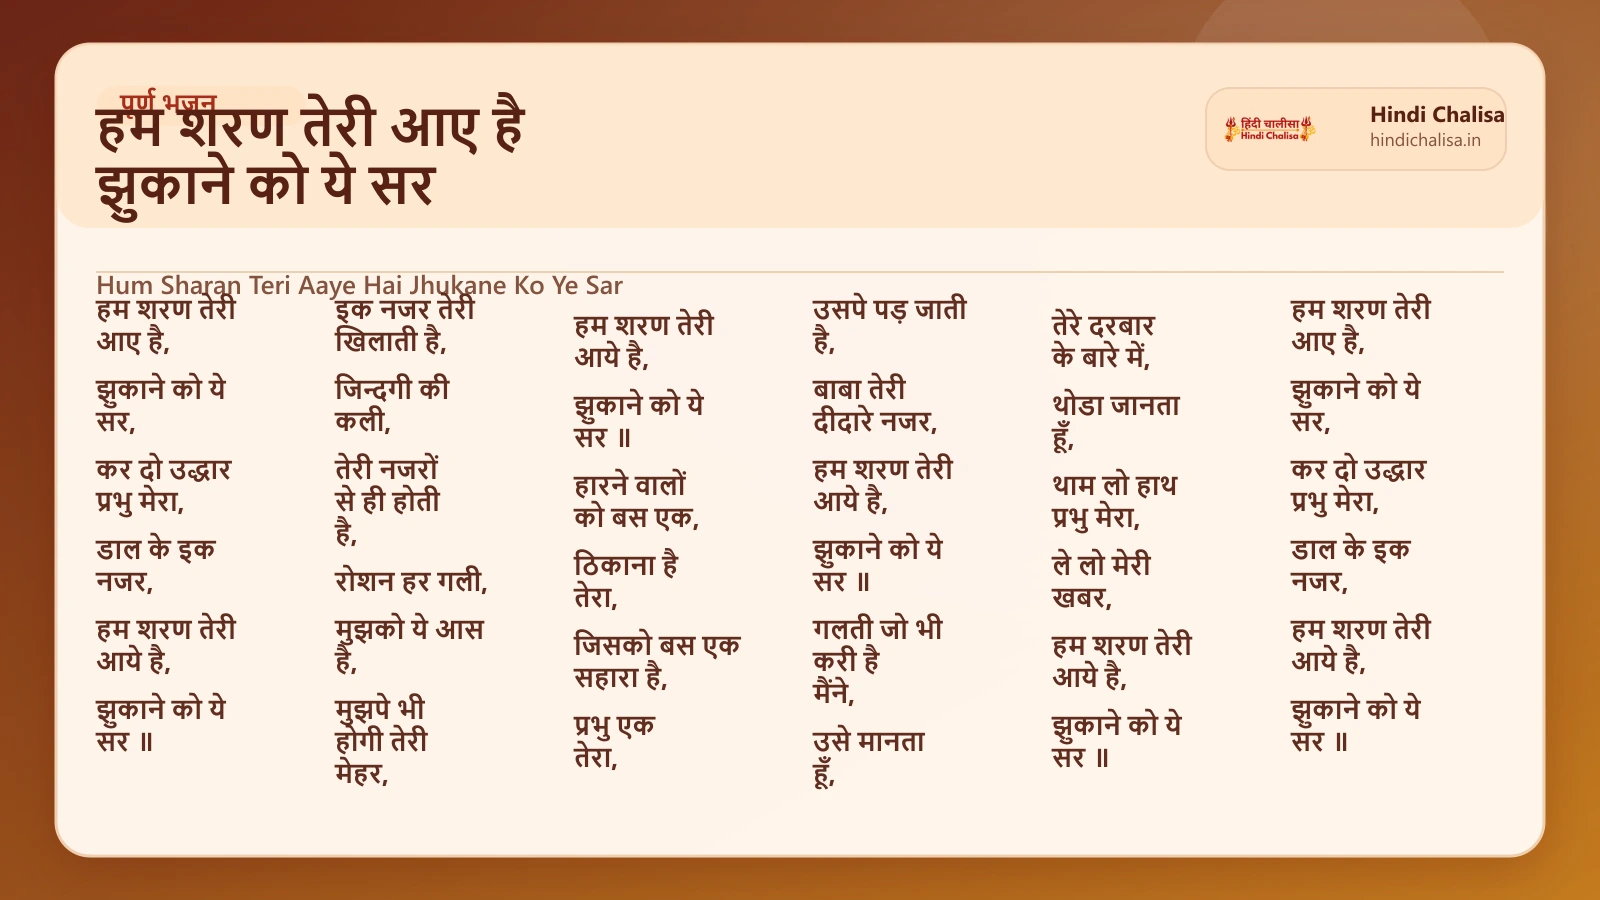 पूर्ण भजन
हम शरण तेरी आए है
झुकाने को ये सर
हिंदी चालीसा
Hindi Chalisa
Hindi Chalisa
hindichalisa.in
Hum Sharan Teri Aaye Hai Jhukane Ko Ye Sar
हम शरण तेरी
आए है,
झुकाने को ये
सर,
कर दो उद्धार
प्रभु मेरा,
डाल के इक
नजर,
हम शरण तेरी
आये है,
झुकाने को ये
सर ॥
इक नजर तेरी
खिलाती है,
जिन्दगी की
कली,
तेरी नजरों
से ही होती
है,
रोशन हर गली,
मुझको ये आस
है,
मुझपे भी
होगी तेरी
मेहर,
हम शरण तेरी
आये है,
झुकाने को ये
सर ॥
हारने वालों
को बस एक,
ठिकाना है
तेरा,
जिसको बस एक
सहारा है,
प्रभु एक
तेरा,
उसपे पड़ जाती
है,
बाबा तेरी
दीदारे नजर,
हम शरण तेरी
आये है,
झुकाने को ये
सर ॥
गलती जो भी
करी है
मैंने,
उसे मानता
हूँ,
तेरे दरबार
के बारे में,
थोडा जानता
हूँ,
थाम लो हाथ
प्रभु मेरा,
ले लो मेरी
खबर,
हम शरण तेरी
आये है,
झुकाने को ये
सर ॥
हम शरण तेरी
आए है,
झुकाने को ये
सर,
कर दो उद्धार
प्रभु मेरा,
डाल के इक
नजर,
हम शरण तेरी
आये है,
झुकाने को ये
सर ॥